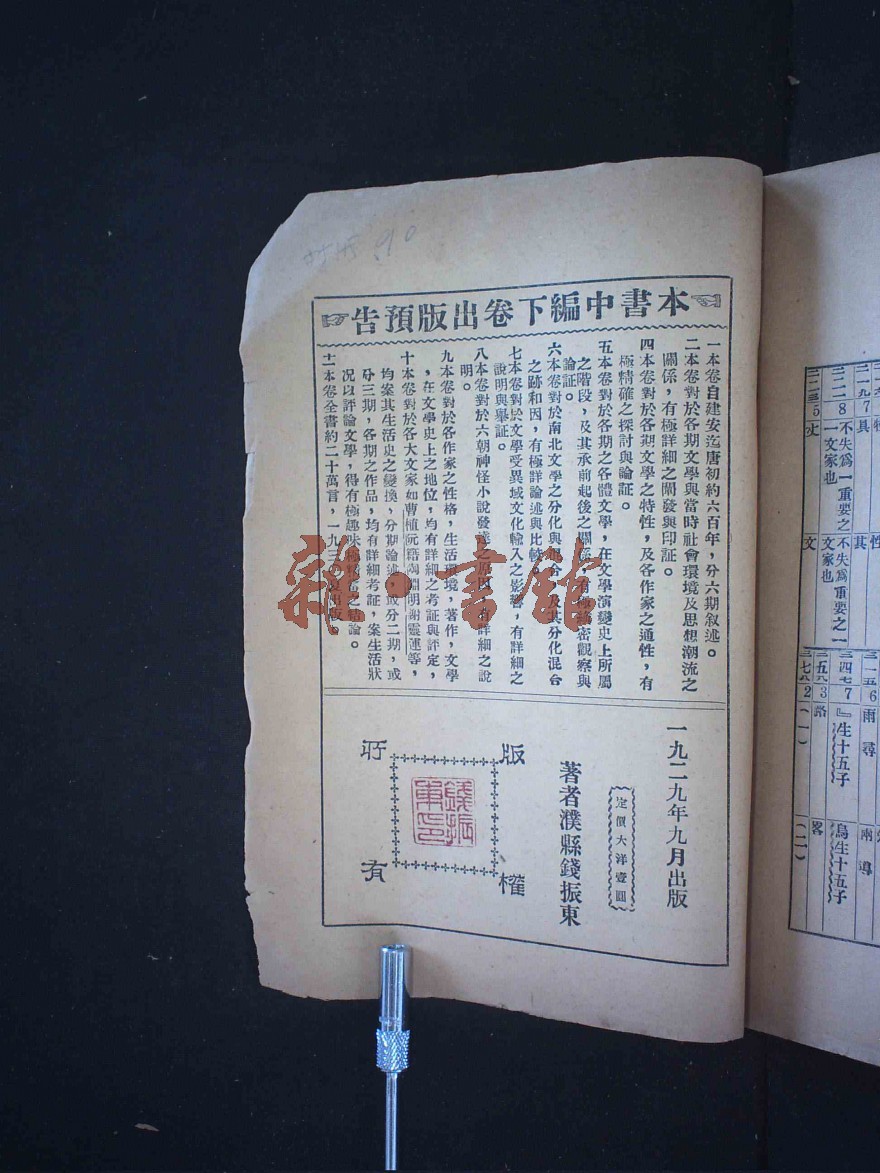 本書中編下卷出版預告
一本卷自建安迄唐初約六百年，分六期叙述。
二本卷對於各期文學與當時社會環境及思想潮流之
關係，有極詳細之闡發與印証。
四本卷對於各期文學之特性，及各作家之通性，有
極精確之探討與論証。
五本卷對於各期之各體文學，在文學演變史上所屬
之階段，及其承前起後之關係，有極 密觀察與
論証。
六本卷對於南北文學之分化與混合，及其分化混合
之跡和因，有極詳論述與比較。
七本卷對於文學受異域文化輸入之影響，有詳細之
說明與舉証。
八本卷對於六朝神怪小說發達之原因，有詳細之說
明。
九本卷對於各作家之性格，生活環境，著作，文學
，在文學史上之地位，均有詳細之考証與評定，
十本卷對於各大文家如曹植阮籍陶淵明謝靈運等，
均案其生活史之變換，分期論述，或分二期，或
分三期，各期之作品，均有詳細考証，案生活狀
况以評論文學，得有極趣味 之結論。
十一本卷全書約二十萬言，一九三 出版。
一九二九年九月出版
定價大洋壹圓
著者濮縣錢振東
版權
所有
錢振
東印
雜·書館
不失爲一重要之
一文家也
不失爲重要之一
文家也
『生十五子
烏生十五子
雨尋
雨導
路
畧
(一)
(二)
其
具
文